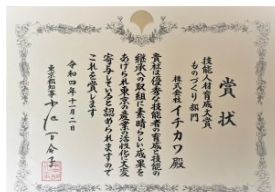 賞状
技能人材育成大賞
ものづくり部門
株式会社 イチカワ 殿
貴社は優秀な技能者の育成と技能の
継承への取組に素晴らしい成果を
あげられ東京の産業の活性化に大変
寄与していると認められますので
これを賞します
令和四年十一月二日
東京都知事 小池百合子